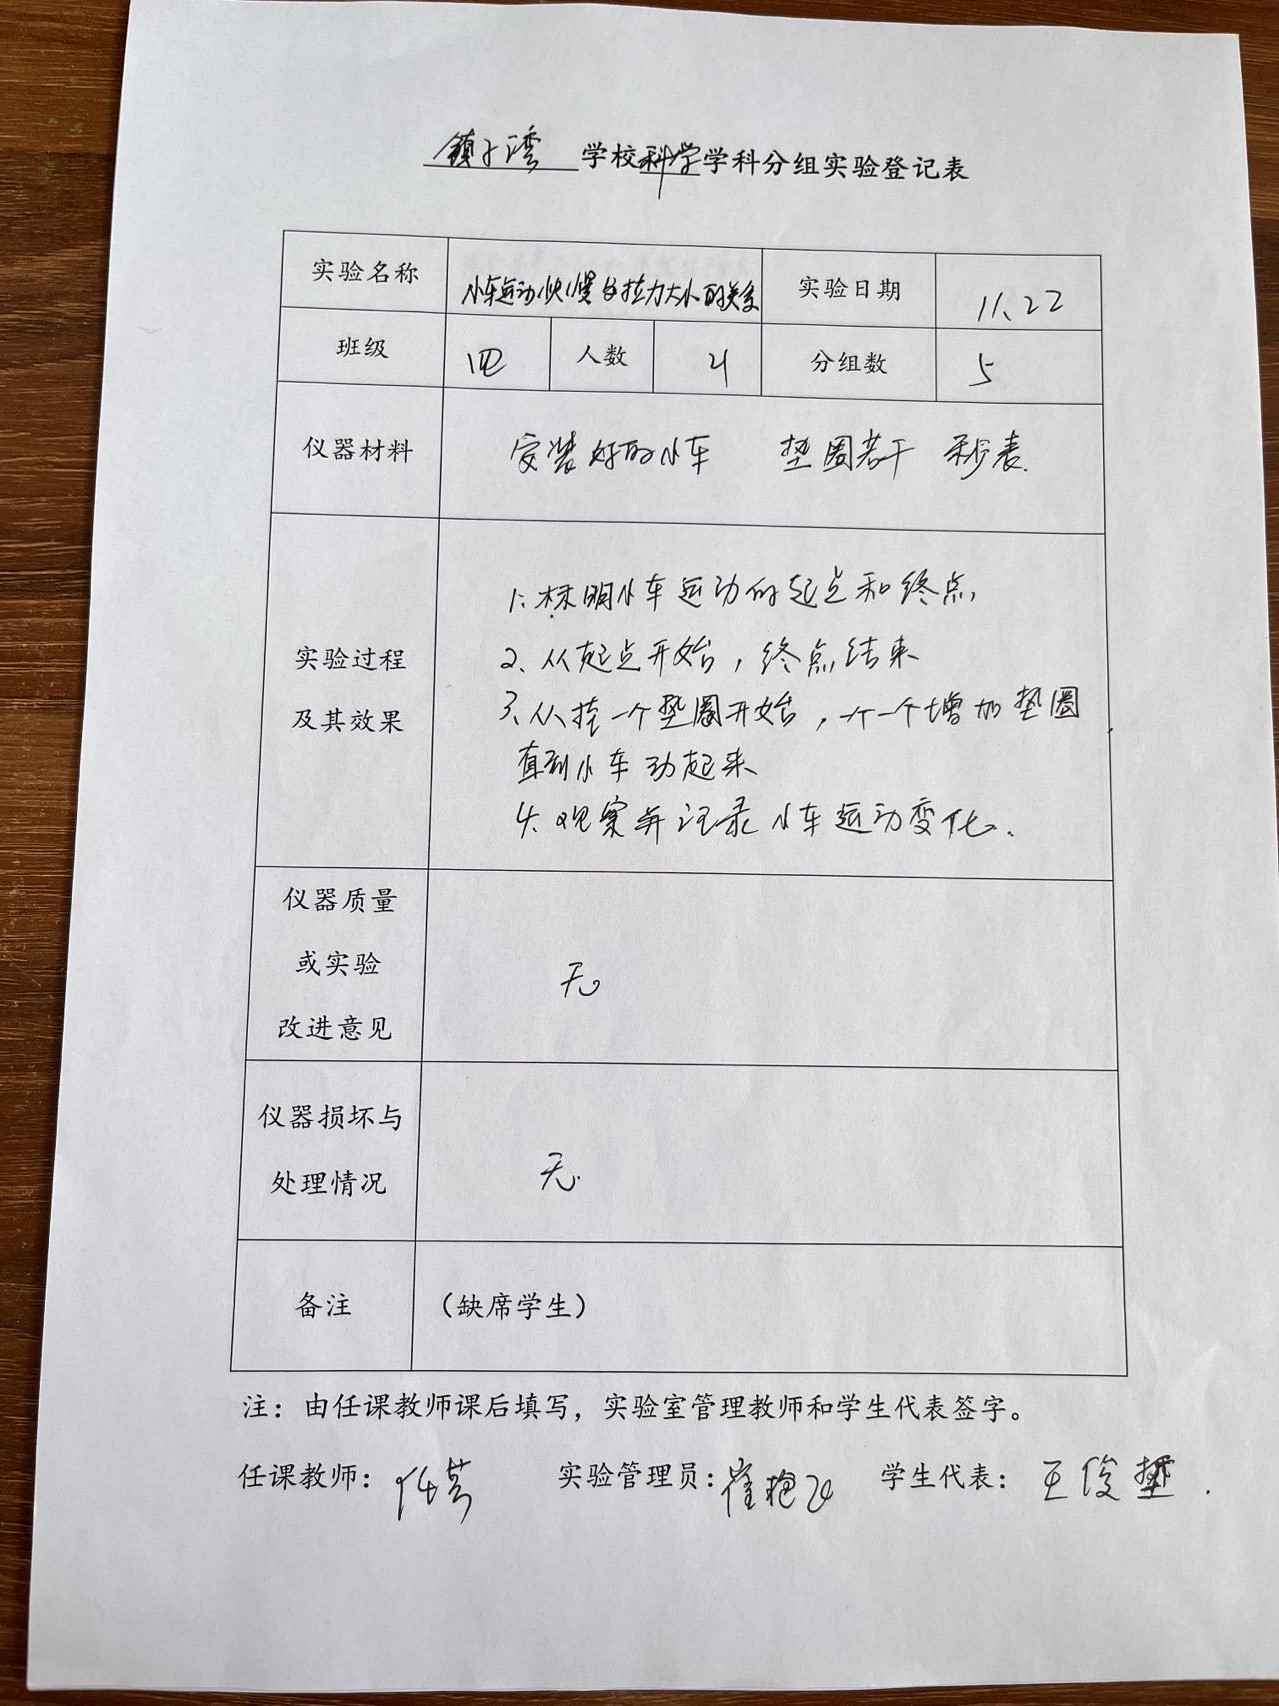 镇子湾 学校科学学科分组实验登记表
实验名称 小车运动快慢与拉力大小的关系 实验日期 11.22
班级 四 人数 21 分组数 5
仪器材料 安装好的小车 垫圈若干 秒表
实验过程
及其效果
1、标明小车运动的起点和终点
2、从起点开始,终点结束
3、从挂一个垫圈开始,一个一个增加垫圈
直到小车动起来
4、观察并记录小车运动变化.
仪器质量
或实验
改进意见
无
仪器损坏与
处理情况
无
备注 (缺席学生)
注:由任课教师课后填写,实验室管理教师和学生代表签字。
任课教师: 实验管理员:崔艳 学生代表:王俊